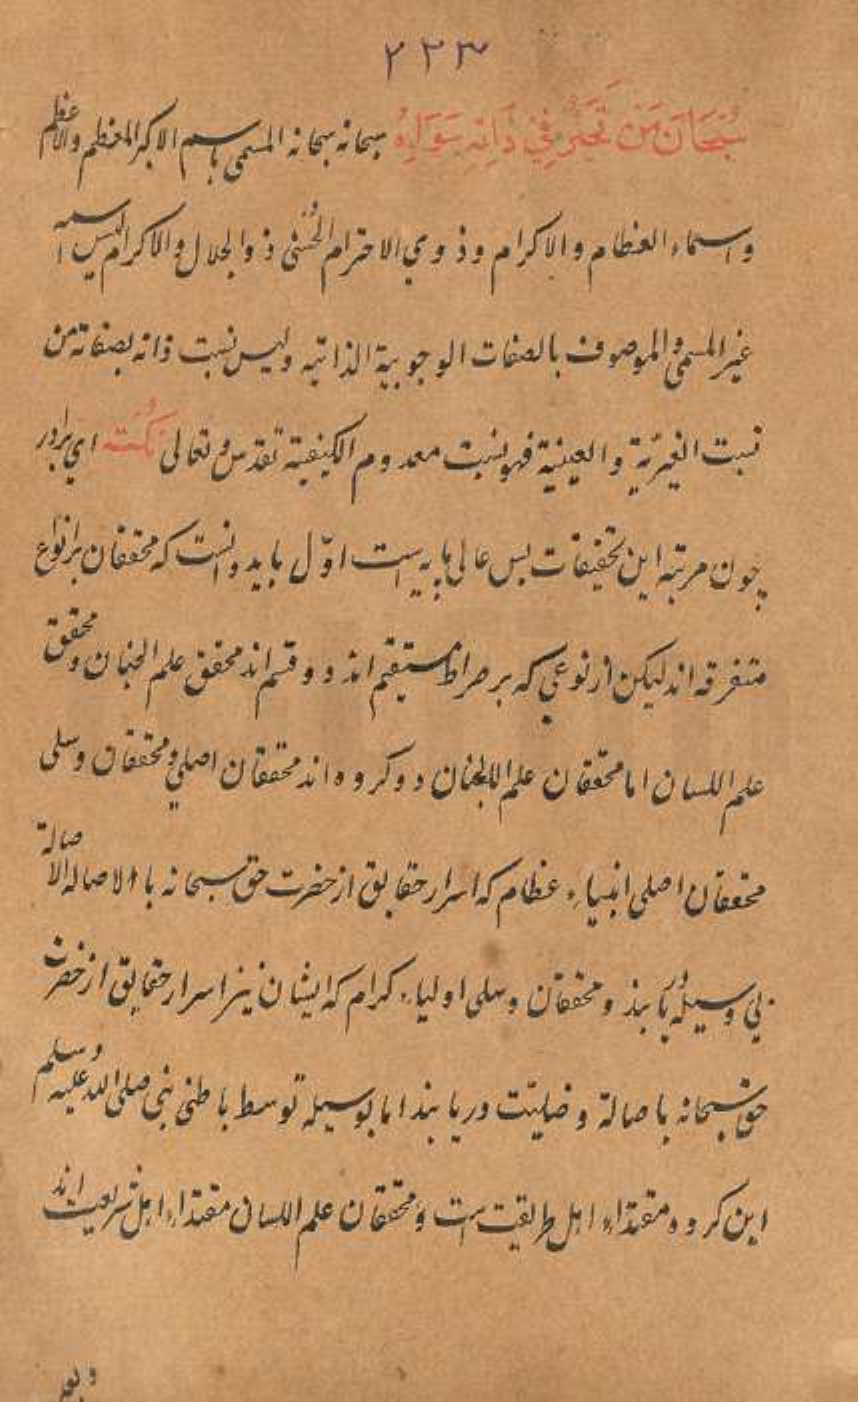 ٢٢٣
سُبْحَانَ مَنْ تَحَيَّرَ فِي ذَاتِهِ سِوَاهُ سبحانه سبحانه المسمى باسم الاكبر المعظم والاعظم
واسماء العظام والاكرام وذوي الاحترام الحُسنى ذوالجلال والاكرام ليس اسمه
غير المسمى والموصوف بالصفات الوجوبية الذاتيه وليس نسبت ذاته بصفاته من
نسبت الغيريّة والعينية فهو نسبت معدوم الكيفية تقدس وتعالى نكُته اي برادر
چون مرتبه اين تحقيقات بس عالى پايه است اوّل بايد دانست كه محققان بر انواع
متفرقه اند ليكن از نوعي كه بر صراط مستقيم اند دو قسم اند محقق علم الجنان ومحقق
علم اللسان اما محققان علم الجنان دو كروه اند محققان اصلي ومحققان وسلى
محققان اصلى انبياء عظام كه اسرار حقايق از حضرت حق سبحانه باالاصالة الاصالة
بي وسيلهٔ يابند ومحققان وسلى اولياء كرام كه ايشان نيز اسرار حقايق از حضرت
حق سبحانه باصالة و دريابند اما بوسيله توسط باطنى نبى صلى الله عليه وسلم
اين كروه مقتداء اهل طريقت است ومحققان علم اللسان مقتداء اهل شريعت اند
وبعد